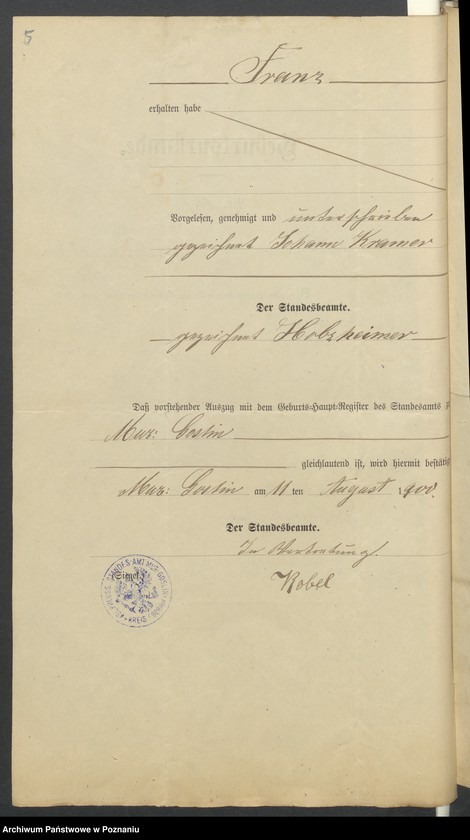 5
Franz
erhalten habe
Vorgelesen, genehmigt und unterschrieben
gezeichnet Johann Kramer
Der Standesbeamte.
gezeichnet Holzheimer
Daß vorstehender Auszug mit dem Geburts-Haupt-Register des Standesamts
Mur: Goslin
gleichlautend ist, wird hiermit bestätig
Mur: Goslin am 11 ten August 1900.
Der Standesbeamte.
In Vertretung
Kobel
(Siegel)
STANDES-AMT MUR. GOSLIN
KREIS
Archiwum Państwowe w Poznaniu